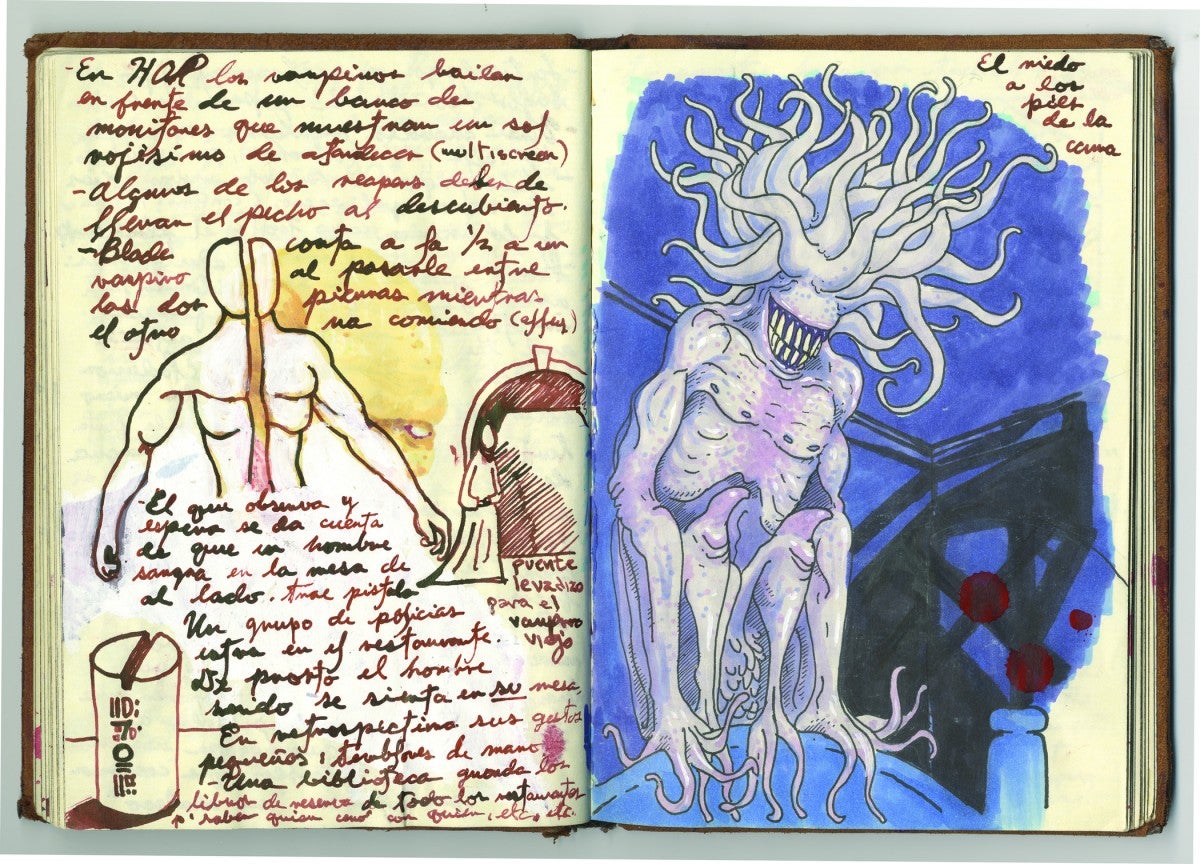 -En HOP los vampiros bailan
en frente de un banco de
monitores que muestran un sol
rojísimo de atardecer (multiscreen)
-Algunos de los reapers deben de
llevan el pecho al descubierto.
-Blade corta a la 1/2 a un
vampiro al pasarle entre
las dos piernas mientras
el otro va corriendo (effex)
-El que observa y
espera se da cuenta
de que un hombre
sangra en la mesa de
al lado. trae pistola
Un grupo de policias
entra en el restaurante.
De pronto el hombre
se sienta en su mesa,
En retrospectiva sus gestos
pequeños, temblores de mano
-Una biblioteca guarda los
libros de reserva de todos los restaurantes
p' saber quien cenó con quién, etc, etc.
puente
levadizo
para el
vampiro
viejo
El miedo
a los
pies
de la
cama